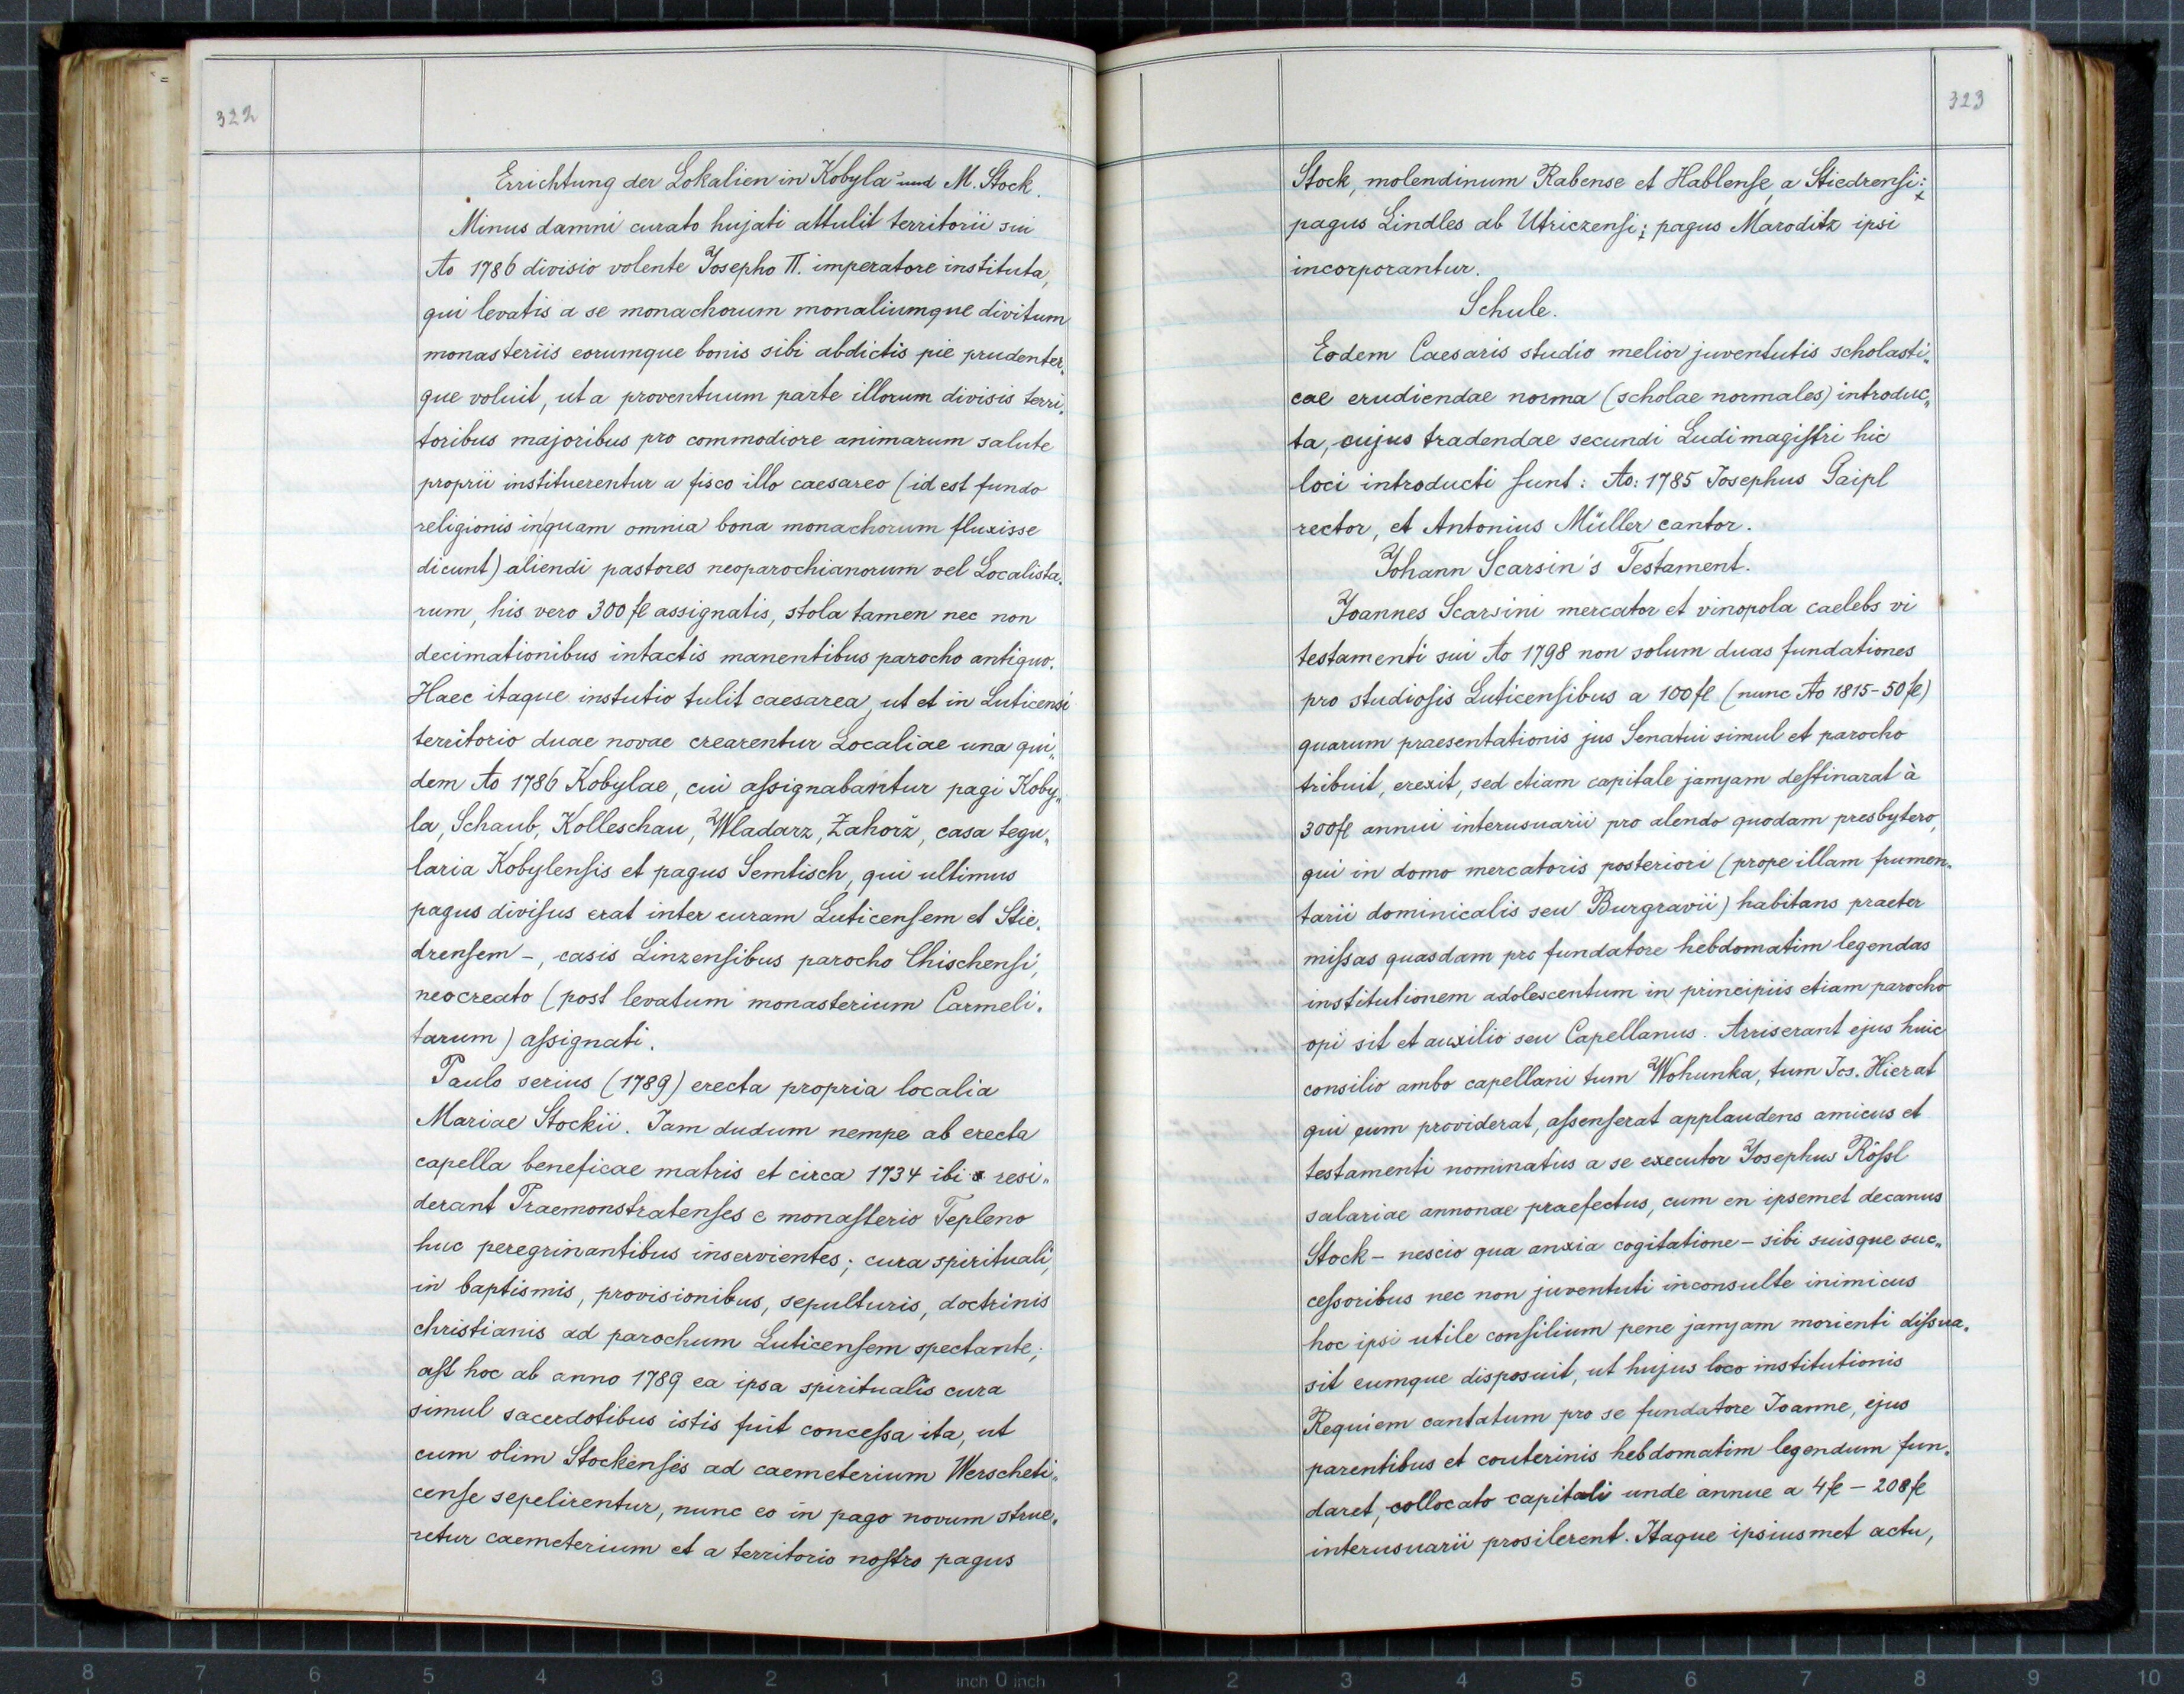 322
Errichtung der Lokalien in Kobyla und M. Stock.
Minus damni curato hujati attulit territorii sui
Ao 1786 divisio volente Josepho II. imperatore instituta,
qui levatis a se monachorum monaliumque divitum
monasteriis eorumque bonis sibi abdictis pie prudenter„
que voluit, ut a proventuum parte illorum divisis terri„
toribus majoribus pro commodiore animarum salute
proprii instituerentur a fisco illo caesareo (id est fundo
religionis in quam omnia bona monachorum fluxisse
dicunt) aliendi pastores neoparochianorum vel Localista„
rum, his vero 300 fl assignatis, stola tamen nec non
decimationibus intactis manentibus parocho antiquo.
Haec itaque instutio tulit caesarea, ut et in Luticensi
territorio duae novae crearentur Localiae una qui„
dem Ao 1786 Kobylae, cui aſsignabantur pagi Koby„
la, Schaub, Kolleschau, Wladarz, Zahorž, casa tegu„
laria Kobylenſis et pagus Semtisch, qui ultimus
pagus diviſus erat inter curam Luticenſem et Stie„
drenſem –, casis Linzenſibus parocho Chischenſi,
neocreato (post levatum monasterium Carmeli„
tarum) aſsignati.
Paulo serius (1789) erecta propria localia
Mariae Stockii. Jam dudum nempe ab erecta
capella beneficae matris et circa 1734 ibi resi„
derant Praemonstratenſes e monaſterio Tepleno
huc peregrinantibus inservientes; cura spirituali,
in baptismis, provisionibus, sepulturis, doctrinis
christianis ad parochum Luticenſem spectante;
aſt hoc ab anno 1789 ea ipsa spiritualis cura
simul sacerdotibus istis fuit conceſsa ita, ut
cum olim Stockenſes ad caemeterium Werscheti„
cenſe sepelirentur, nunc eo in pago novum strue„
retur caemeterium et a territorio noſtro pagus
323
Stock, molendinum Rabense et Hablenſe, a Stiedrenſi;
pagus Lindles ab Utriczenſi; pagus Maroditz ipsi
incorporantur.
Schule.
Eodem Caesaris studio melior juventutis scholasti„
cae erudiendae norma (scholae normales) introduc„
ta, cujus tradendae secundi Ludimagiſtri hic
loci introducti ſunt: Ao: 1785 Josephus Gaipl
rector, et Antonius Müller cantor.
Johann Scarsin's Testament.
Joannes Scarsini mercator et vinopola caelebs vi
testamenti sui Ao 1798 non solum duas fundationes
pro studioſis Luticenſibus a 100 fl (nunc Ao 1815–50 fl)
quarum praesentationis jus Senatui simul et parocho
tribuit, erexit, sed etiam capitale jamjam deſtinarat à
300 fl annui interusuarii pro alendo quodam presbytero,
qui in domo mercatoris posteriori (prope illam frumen„
tarii dominicalis seu Burgravii) habitans praeter
miſsas quasdam pro fundatore hebdomatim legendas
institutionem adolescentum in principiis etiam parocho
opi sit et auxilio seu Capellanus. Arriserant ejus huic
consilio ambo capellani tum Wohunka, tum Jos. Hierat
qui eum providerat, aſsenſerat applaudens amicus et
testamenti nominatus a se executor Josephus Röſsl
salariae annonae praefectus, cum en ipsemet decanus
Stock – nescio qua anxia cogitatione – sibi suisque suc„
ceſsoribus nec non juventuti inconsulte inimicus
hoc ipsi utile conſilium pene jamjam morienti diſsua„
sit eumque disposuit, ut hujus loco institutionis
Requiem cantatum pro se fundatore Joanne, ejus
parentibus et couterinis hebdomatim legendum fun„
daret, collocato capitali unde annue a 4 fl – 208 fl
interusuarii prosilerent. Itaque ipsiusmet actu,